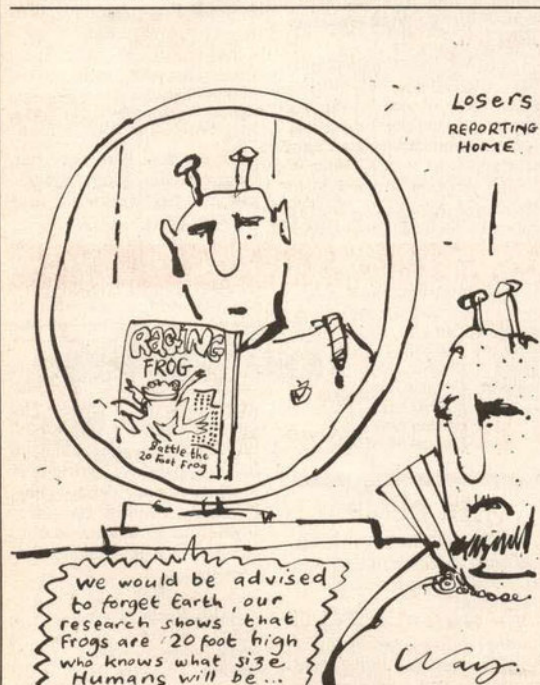 Losers
REPORTING
HOME
RAGING
FROG
Battle the
20 foot frog
we would be advised
to forget Earth, our
research shows that
Frogs are 20 foot high
who knows what size
Humans will be...